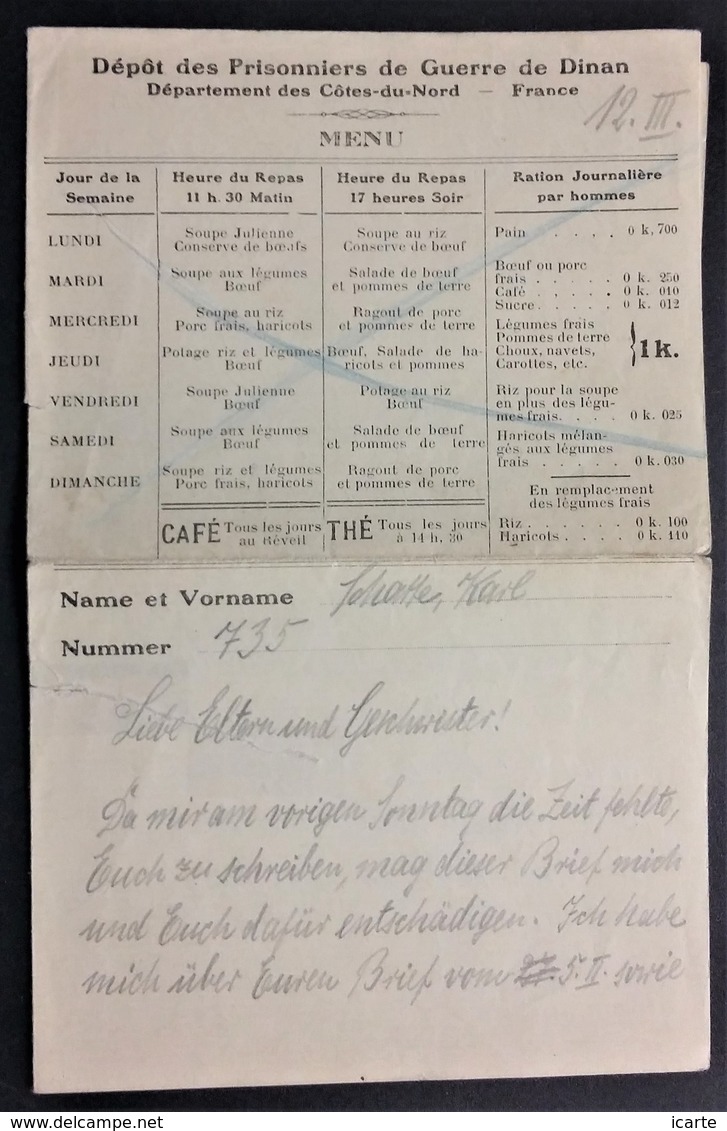 Dépôt des Prisonniers de Guerre de Dinan
Département des Côtes-du-Nord — France
12. III.
MENU
Jour de la Semaine | Heure du Repas 11 h. 30 Matin | Heure du Repas 17 heures Soir | Ration Journalière par hommes
LUNDI
Soupe Julienne
Conserve de bœufs
Soupe au riz
Conserve de bœuf
MARDI
Soupe aux légumes
Bœuf
Salade de bœuf
et pommes de terre
MERCREDI
Soupe au riz
Porc frais, haricots
Ragout de porc
et pommes de terre
JEUDI
Potage riz et légumes
Bœuf
Bœuf, Salade de ha-
ricots et pommes
VENDREDI
Soupe Julienne
Bœuf
Potage au riz
Bœuf
SAMEDI
Soupe aux légumes
Bœuf
Salade de bœuf
et pommes de terre
DIMANCHE
Soupe riz et légumes
Porc frais, haricots
Ragout de porc
et pommes de terre
CAFÉ Tous les jours au Réveil
THÉ Tous les jours à 14 h. 30
Pain . . . . 0 k, 700
Bœuf ou porc
frais . . . . . 0 k. 250
Café . . . . . 0 k. 010
Sucre. . . . . 0 k. 012
Légumes frais
Pommes de terre
Choux, navets,
Carottes, etc.
1 k.
Riz pour la soupe
en plus des légu-
mes frais. . . . 0 k. 025
Haricots mélan-
gés aux légumes
frais . . . . . 0 k. 030
En remplacement
des légumes frais
Riz . . . . . . 0 k. 100
Haricots. . . . 0 k. 110
Name et Vorname Karl
Nummer 735
Liebe Eltern und Geschwister!
Da mir am vorigen Sonntag die Zeit fehlte,
Euch zu schreiben, mag dieser Brief mich
und Euch dafür entschädigen. Ich habe
mich über Euren Brief vom 5. II. sowie
icarte